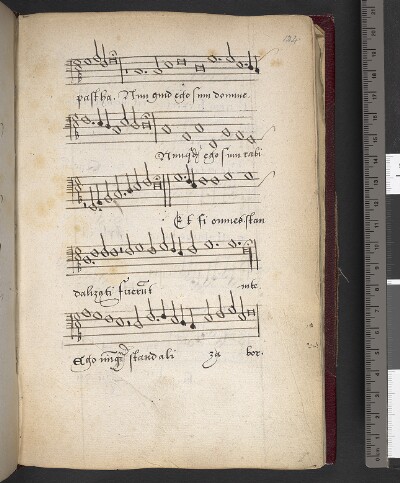 124
pascha. Nunquid ego sum domine.
Nunqd ego sum rabi
Et si omnes scan
dalizati fuerūt in te
Ego nūqȝ scandali za bor.